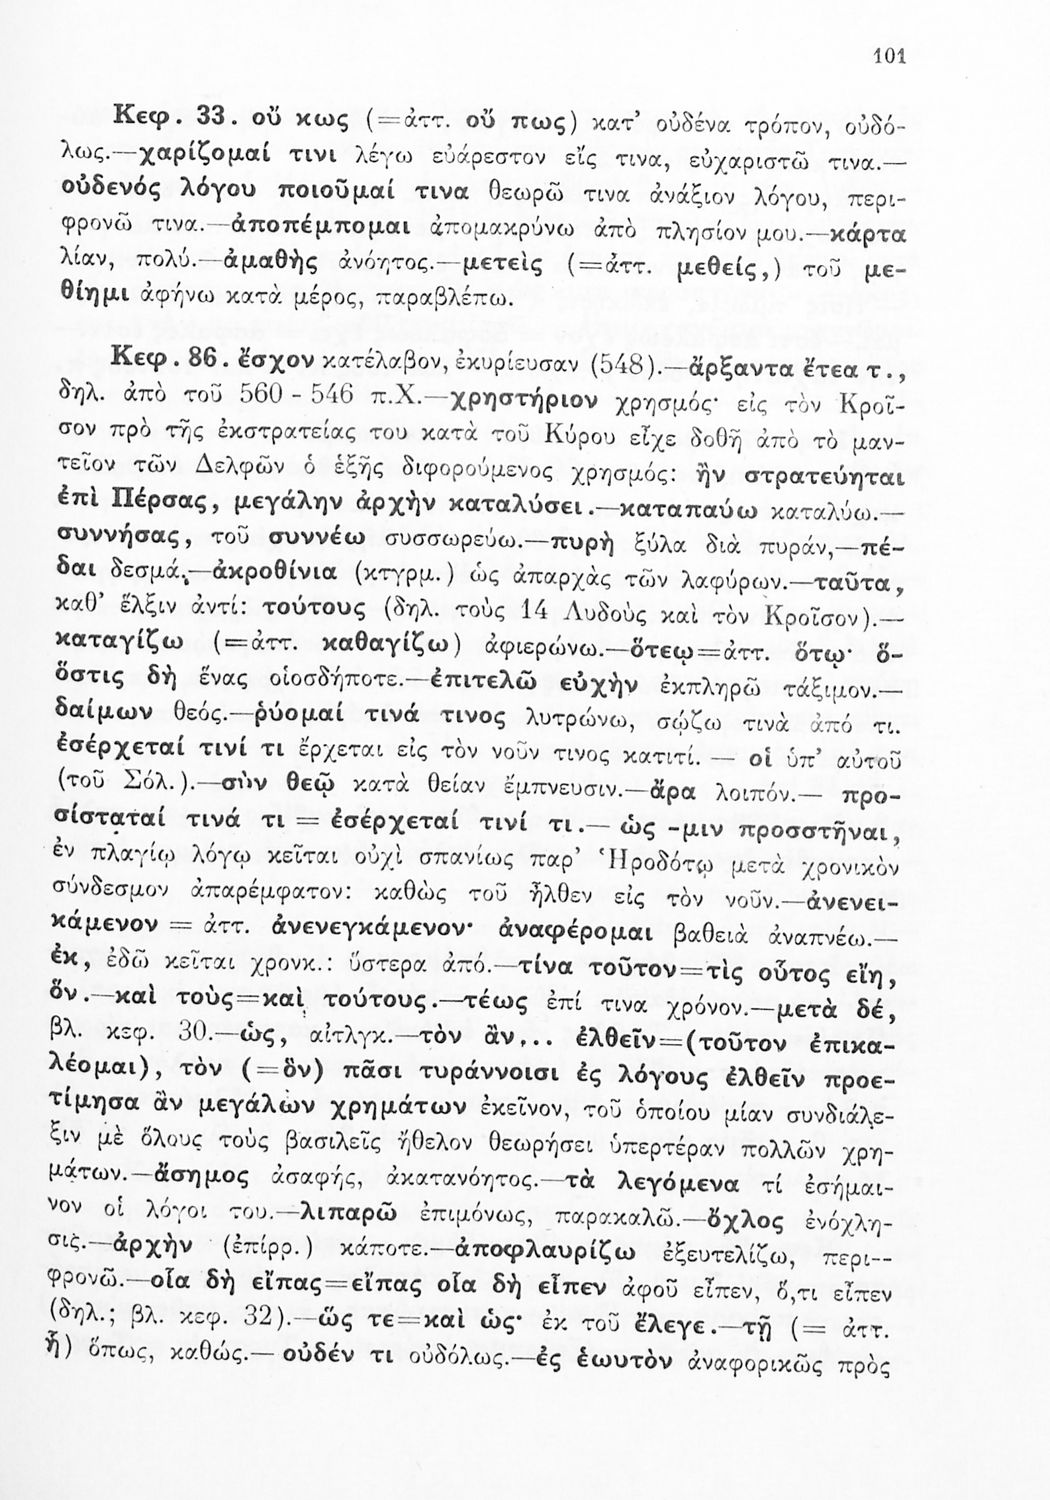 101
Κεφ. 33. οὔ κως (=ἀττ. οὔ πως) κατ’ οὐδένα τρόπον, οὐδό-
λως.—χαρίζομαί τινι λέγω εὐάρεστον εἴς τινα, εὐχαριστῶ τινα.—
οὐδενός λόγου ποιοῦμαί τινα θεωρῶ τινα ἀνάξιον λόγου, περι-
φρονῶ τινα.—ἀποπέμπομαι ἀπομακρύνω ἀπὸ πλησίον μου.—κάρτα
λίαν, πολύ.—ἀμαθὴς ἀνόητος.—μετεὶς (=ἀττ. μεθείς,) τοῦ με-
θίημι ἀφήνω κατὰ μέρος, παραβλέπω.
Κεφ. 86. ἔσχον κατέλαβον, ἐκυρίευσαν (548).—ἄρξαντα ἔτεα τ.,
δηλ. ἀπὸ τοῦ 560 - 546 π.Χ.—χρηστήριον χρησμός· εἰς τὸν Κροῖ-
σον πρὸ τῆς ἐκστρατείας του κατὰ τοῦ Κύρου εἶχε δοθῆ ἀπὸ τὸ μαν-
τεῖον τῶν Δελφῶν ὁ ἑξῆς διφορούμενος χρησμός: ἢν στρατεύηται
ἐπὶ Πέρσας, μεγάλην ἀρχὴν καταλύσει.—καταπαύω καταλύω.—
συννήσας, τοῦ συννέω συσσωρεύω.—πυρὴ ξύλα διὰ πυράν,—πέ-
δαι δεσμά,—ἀκροθίνια (κτγρμ.) ὡς ἀπαρχὰς τῶν λαφύρων.—ταῦτα,
καθ’ ἕλξιν ἀντί: τούτους (δηλ. τοὺς 14 Λυδοὺς καὶ τὸν Κροῖσον).—
καταγίζω (=ἀττ. καθαγίζω) ἀφιερώνω.—ὅτεῳ=ἀττ. ὅτῳ· ὅ-
ὅστις δὴ ἕνας οἱοσδήποτε.—ἐπιτελῶ εὐχὴν ἐκπληρῶ τάξιμον.—
δαίμων θεός.—ῥύομαί τινά τινος λυτρώνω, σῴζω τινὰ ἀπό τι.
ἐσέρχεταί τινί τι ἔρχεται εἰς τὸν νοῦν τινος κατιτί. — οἱ ὑπ’ αὐτοῦ
(τοῦ Σόλ.).—σὺν θεῷ κατὰ θείαν ἔμπνευσιν.—ἄρα λοιπόν.— προ-
σίσταταί τινά τι = ἐσέρχεταί τινί τι.— ὡς -μιν προσστῆναι,
ἐν πλαγίῳ λόγῳ κεῖται οὐχὶ σπανίως παρ’ Ἡροδότῳ μετὰ χρονικὸν
σύνδεσμον ἀπαρέμφατον: καθὼς τοῦ ἦλθεν εἰς τὸν νοῦν.—ἀνενει-
κάμενον = ἀττ. ἀνενεγκάμενον· ἀναφέρομαι βαθειὰ ἀναπνέω.—
ἐκ, ἐδῶ κεῖται χρονκ.: ὕστερα ἀπό.—τίνα τοῦτον=τὶς οὗτος εἴη,
ὅν.—καὶ τοὺς=καὶ τούτους.—τέως ἐπί τινα χρόνον.—μετὰ δέ,
βλ. κεφ. 30.—ὡς, αἰτλγκ.—τὸν ἂν... ἐλθεῖν=(τοῦτον ἐπικα-
λέομαι), τὸν (=ὃν) πᾶσι τυράννοισι ἐς λόγους ἐλθεῖν προε-
τίμησα ἂν μεγάλων χρημάτων ἐκεῖνον, τοῦ ὁποίου μίαν συνδιάλε-
ξιν μὲ ὅλους τοὺς βασιλεῖς ἤθελον θεωρήσει ὑπερτέραν πολλῶν χρη-
μάτων.—ἄσημος ἀσαφής, ἀκατανόητος.—τὰ λεγόμενα τί ἐσήμαι-
νον οἱ λόγοι του.—λιπαρῶ ἐπιμόνως, παρακαλῶ.—ὄχλος ἐνόχλη-
σις.—ἀρχὴν (ἐπίρρ.) κάποτε.—ἀποφλαυρίζω ἐξευτελίζω, περι--
φρονῶ.—οἷα δὴ εἴπας=εἴπας οἷα δὴ εἶπεν ἀφοῦ εἶπεν, ὅ,τι εἶπεν
(δηλ.; βλ. κεφ. 32).—ὥς τε=καὶ ὡς· ἐκ τοῦ ἔλεγε.—τῇ (= ἀττ.
ᾗ) ὅπως, καθώς.— οὐδέν τι οὐδόλως.—ἐς ἑωυτὸν ἀναφορικῶς πρὸς